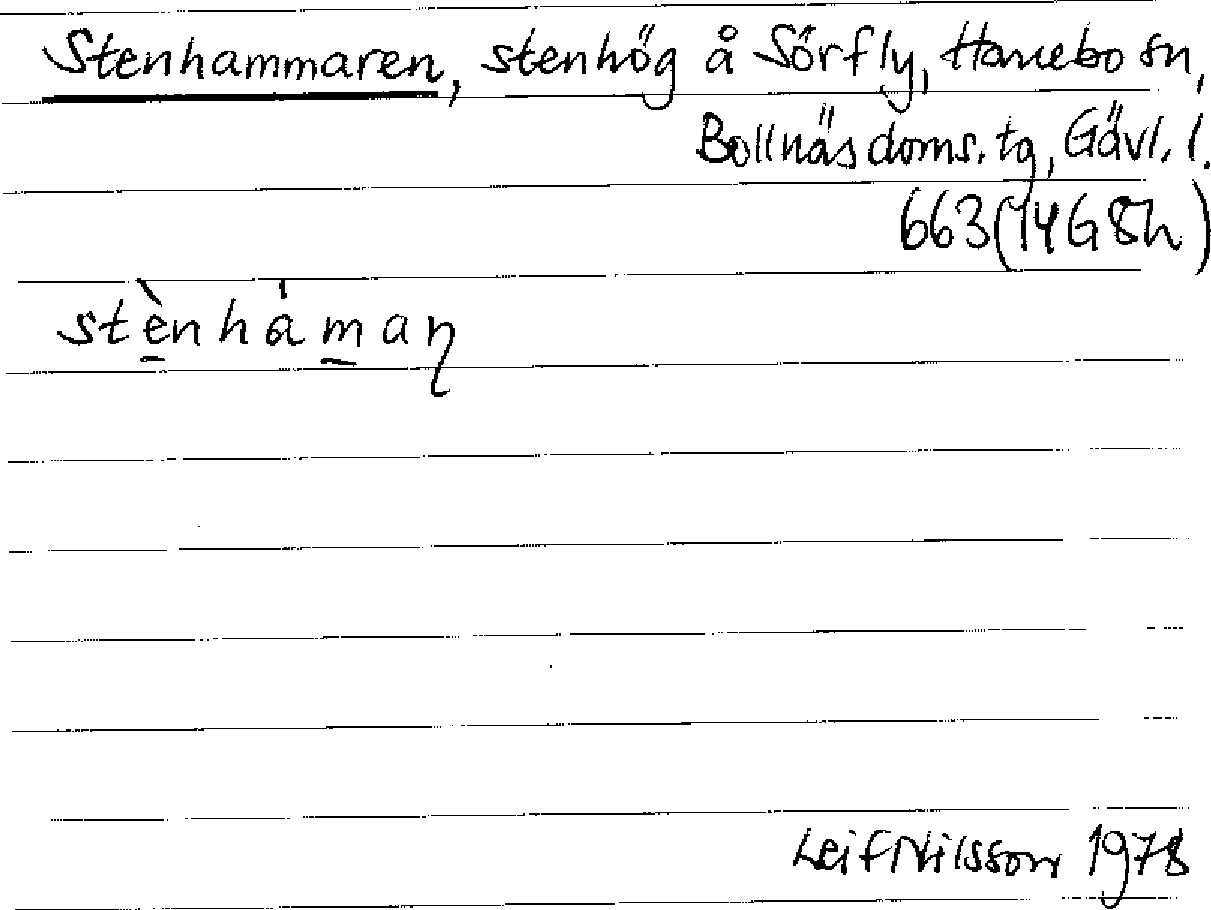 Stenhammaren, stenhög å Sörfly, Hanebo sn,
Bollnäs doms. tg, Gävl. l.
663 (14G8h)
stè̱nhám̱aŋ
Leif Nilsson 1978